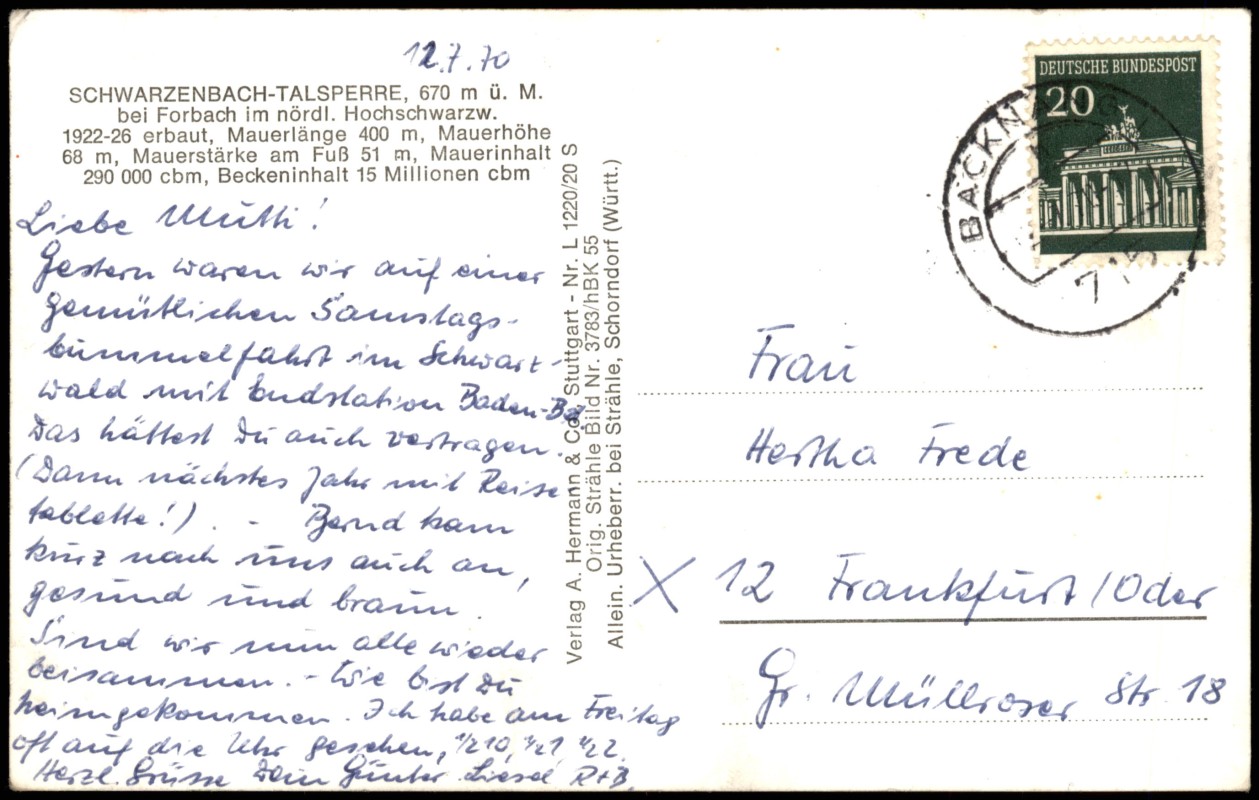 12.7.70
SCHWARZENBACH-TALSPERRE, 670 m ü. M.
bei Forbach im nördl. Hochschwarzw.
1922-26 erbaut, Mauerlänge 400 m, Mauerhöhe
68 m, Mauerstärke am Fuß 51 m, Mauerinhalt
290 000 cbm, Beckeninhalt 15 Millionen cbm
Liebe Mutti!
Gestern waren wir auf einer
gemütlichen Samstags-
bummelfahrt im Schwarz-
wald mit Endstation Baden-Bad.
Das hättest Du auch vertragen.
(Dann nächstes Jahr mit Reise
tablette!). - Bernd kam
kurz nach uns auch an,
gesund und braun.
Sind wir nun alle wieder
beisammen. - Wie bist Du
heimgekommen. Ich habe am Freitag
oft auf die Uhr gesehen, 1/2 10, 1/2 1, 1/2 2.
Herzl. Grüsse Dein Günter Liesel R+B.
Verlag A. Hermann & Co. Stuttgart - Nr. L 1220/20 S
Orig. Strähle Bild Nr. 3783/hBK 55
Allein. Urheberr. bei Strähle, Schorndorf (Württ.)
DEUTSCHE BUNDESPOST
20
BACKNANG
715
Frau
Hertha Frede
X 12 Frankfurt/Oder
Gr. Müllroser Str. 18